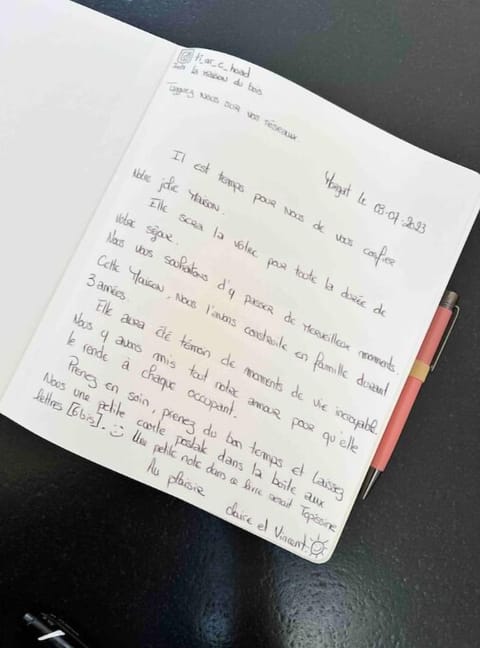 la maison du bois
Taguez nous sur vos réseaux
le 03-07-2023
Il est temps pour nous de vous confier
Notre jolie Maison.
Elle sera la vôtre pour toute la durée de
votre séjour.
Nous vous souhaitons d'y passer de Merveilleux moments.
Cette Maison, Nous l'avons construite en famille durant
3 années.
Elle aura été témoin de moments de vie incroyable.
Nous y avons mis tout notre amour pour qu'elle
le rende à chaque occupant.
Prenez en soin, prenez du bon temps et laissez
Nous une petite carte postale dans la boîte aux
lettres [6bis]. Une petite note dans ce livre serait
Au plaisir
Claire et Vincent